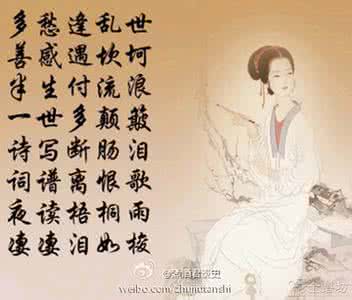 多愁逢乱世
善感遇坎坷
半生付流浪
一世多颠簸
诗写断肠泪
词谱离恨歌
夜读梧桐雨
凄凄泪如梭